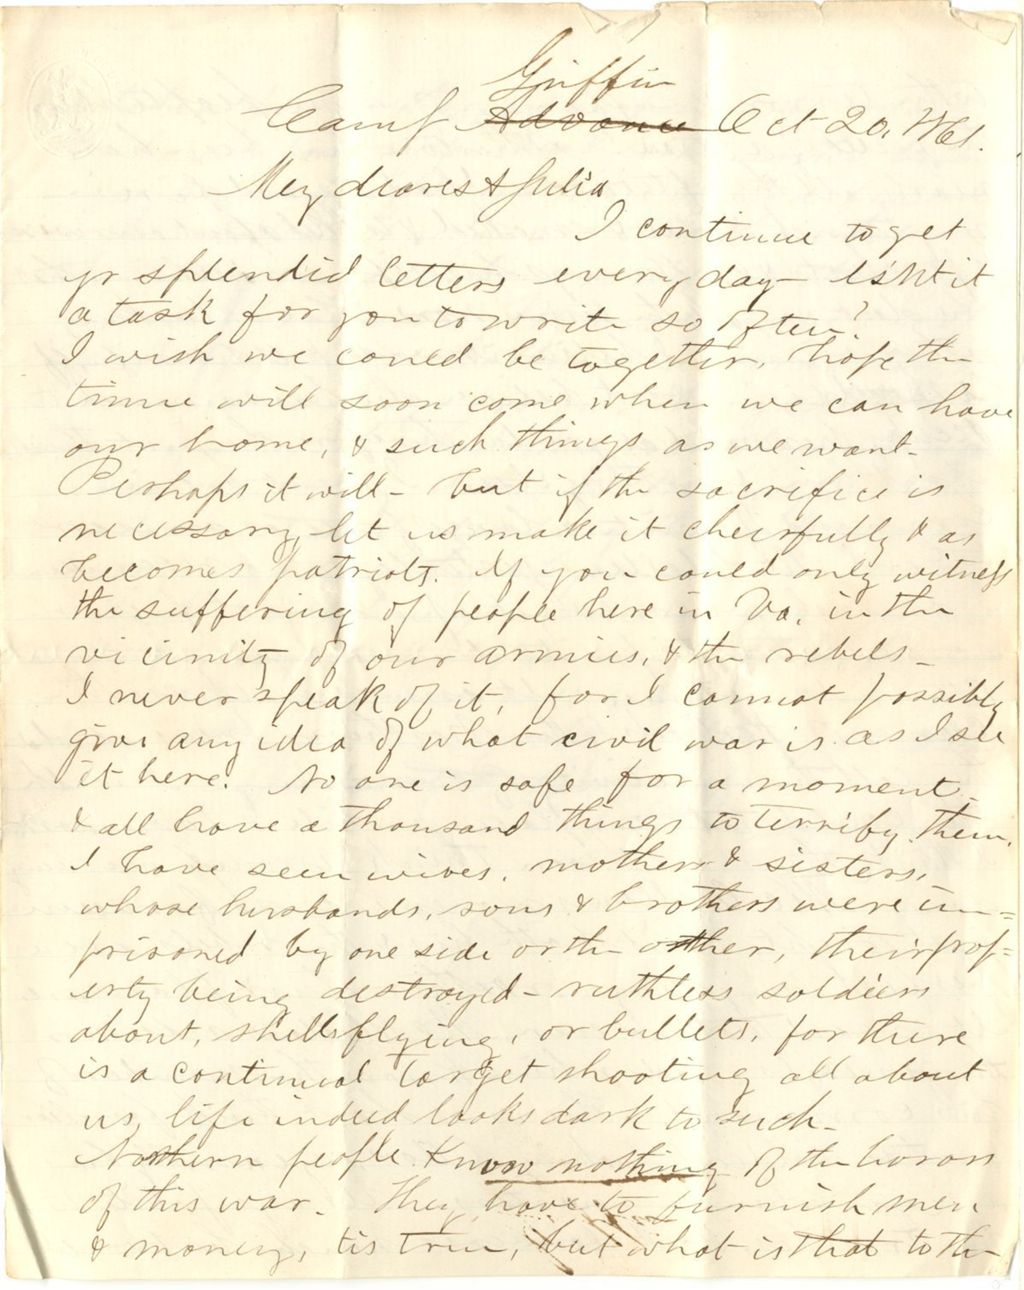 Griffin
Camp Advance Oct 20, 1861.
My dearest Julia
I continue to get
yr splendid letters every day - Isn't it
a task for you to write so often?
I wish we could be together, hope the
time will soon come when we can have
our home, & such things as we want -
Perhaps it will - but if the sacrifice is
necessary, let us make it cheerfully & as
becomes patriots. If you could only witness
the suffering of people here in Va. in the
vicinity of our armies, & the rebels -
I never speak of it, for I cannot possibly
give any idea of what civil war is as I see
it here. No one is safe for a moment -
& all have a thousand things to terrify them.
I have seen wives, mothers & sisters,
whose husbands, sons & brothers were im=
prisoned by one side or the other, their prop=
erty being destroyed - ruthless soldiers
about, shells flying, or bullets, for there
is a continual target shooting all about
us, life indeed looks dark to such -
Northern people know nothing of the horors
of this war - They have to furnish men
& money, tis true, but what is that to the